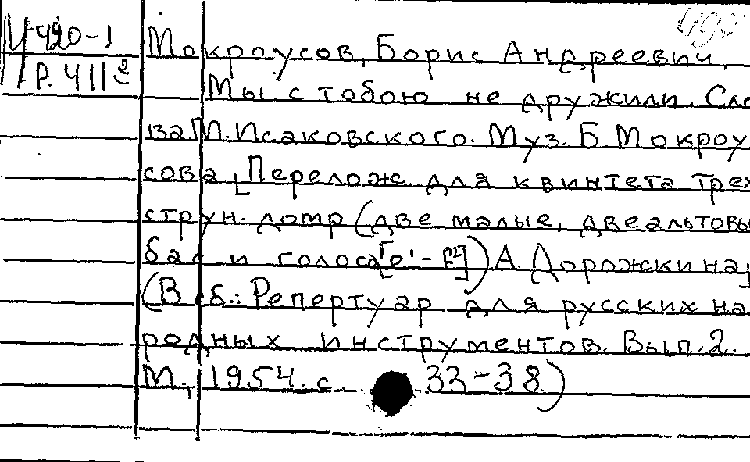 Ц 420-1
Р. 411²
Мокроусов, Борис Андреевич.
Мы с тобою не дружили. Сло
ва М. Исаковского. Муз. Б Мокроу
сова [Перелож для квинтета трех
струн. домр (две малые, две альтовы
бас и голоса
А Дорожкина]
(В сб.: Репертуар для русских на
родных инструментов. Вып. 2.
М., 1954. с. 33-38)